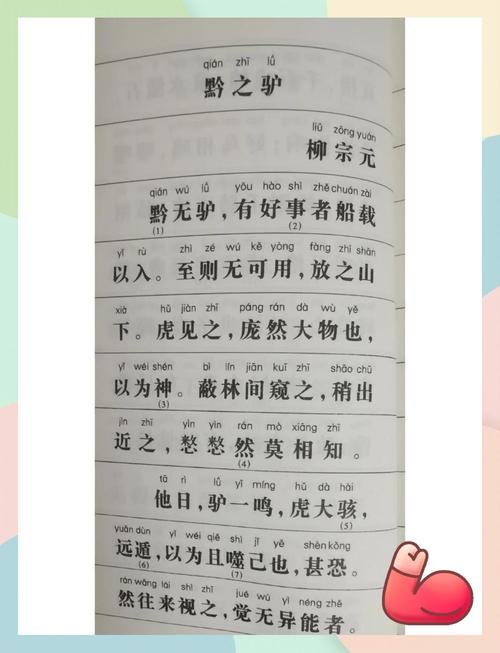 qián zhī lǘ
黔之驴
liǔ zōng yuán
柳宗元
qián wú lǘ yǒu hào shì zhě chuán zài
黔无驴，有好事者船载
(1) (2)
yǐ rù zhì zé wú kě yòng fàng zhī shān
以入。至则无可用，放之山
xià hǔ jiàn zhī páng rán dà wù yě
下。虎见之，庞然大物也，
yǐ wéi shén bì lín jiān kuī zhī shāo chū
以为神。蔽林间窥之，稍出
(3)
jìn zhī yìn yìn rán mò xiāng zhī
近之，慭慭然莫相知。
(4)
tā rì lǘ yì míng hǔ dà hài
他日，驴一鸣，虎大骇，
(5)
yuǎn dùn yǐ wéi qiě shì jǐ yě shèn kǒng
远遁，以为且噬己也，甚恐。
(6) (7)
rán wǎng lái shì zhī jué wú yì néng zhě
然往来视之，觉无异能者。